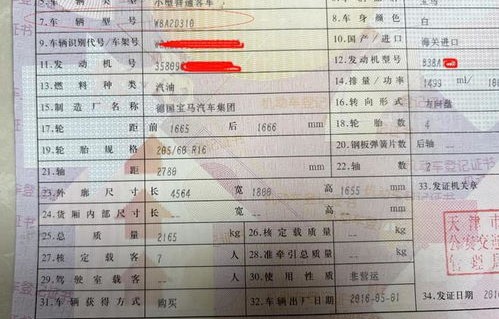 小型普通客车
宝马
7.车辆型号 WBA2D310
8.车身颜色 白
9.车辆识别代号/车架号
10.国产/进口 海关进口
11.发动机号 35809
12.发动机型号 B38A
13.燃料种类 汽油
14.排量/功率 1499 ml/
15.制造厂名称 德国宝马汽车集团
16.转向形式 方向盘
17.轮距 前 1665 后 1666 mm
18.轮胎数 4
19.轮胎规格 205/60 R16
20.钢板弹簧片数 后轴
21.轴距 2780 mm
22.轴数 2
23.外廓尺寸 长 4564 宽 1800 高 1655 mm
33.发证机关章
24.货厢内部尺寸 长 -- 宽 -- 高 -- mm
25.总质量 2165 kg
26.核定载质量 -- kg
27.核定载客 7 人
28.准牵引总质量 -- kg
29.驾驶室载客 -- 人
30.使用性质 非营运
31.车辆获得方式 购买
32.车辆出厂日期 2016-05-01
34.发证日期 201
天津市
公安交
管理局